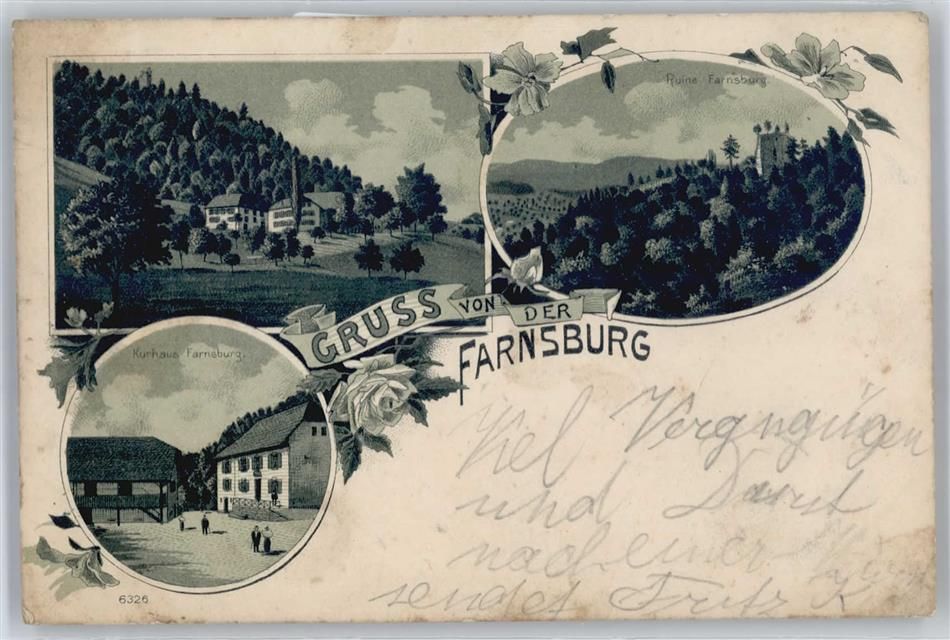 Ruine Farnsburg
GRUSS VON DER
FARNSBURG
Kurhaus Farnsburg.
Viel Vergngügen
und Durst
nach einer
sendet Fritz
6326